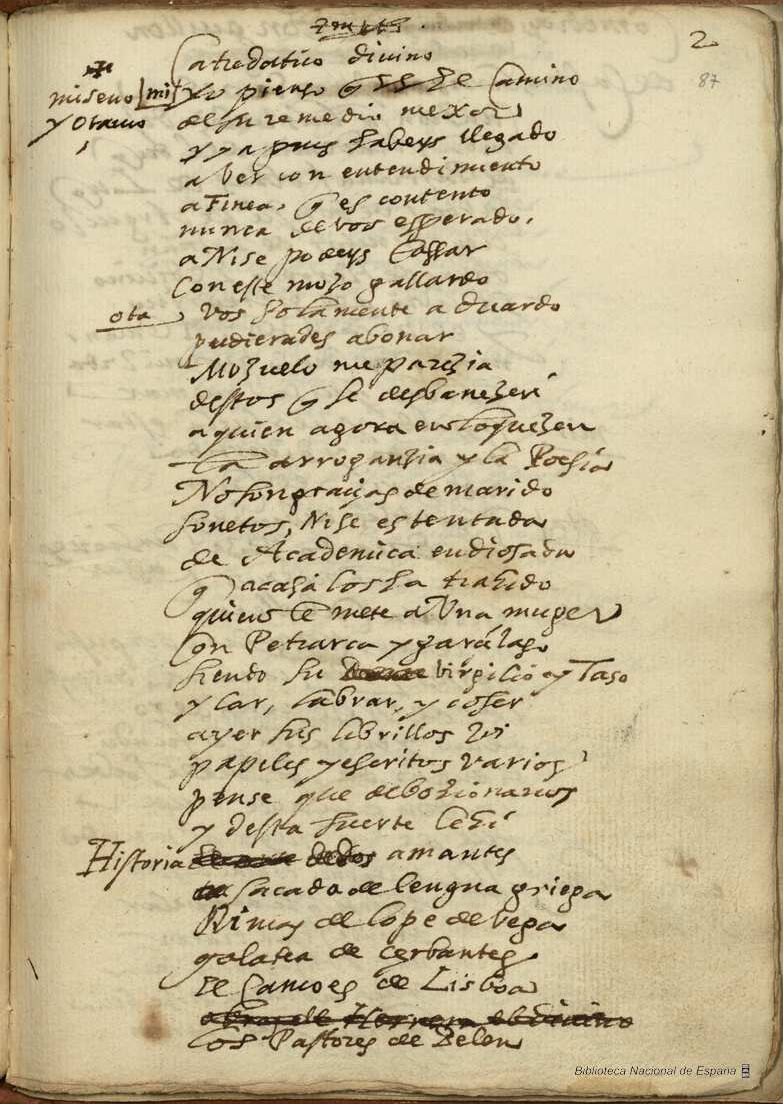 2
87
Catedratico divino
miseno [mi] yo pienso q̃ es el camino
y Otauio del su remedio mexor
y ya pues habeys llegado
a ver con entendimiento
a Finea, q̃ es contento
nunca de vos esperado,
a Nise podeys cassar
con este mozo gallardo
ota vos solamente a Duardo
pudierades abonar
Mozuelo me parezia
destos q̃ se desbanezen
a quien agora enloquezen
la arroganzia y la Poesia
No son graçias de marido
sonetos, Nise es tentada
de Academica endiosada
q̃ a casa los ha traido
quien le mete a Una muger
con Petrarca y garçilaso
siendo su Virgilio y Taso
ylar, labrar, y coser
ayer sus librillos vi
papeles y escritos varios
pense que debozionarios
y desta suerte lehi
Historia de dos amantes
sacada de lengua griega
Rimas de lope de vega
galatea de cerbantes
el Camoes de Lisboa
los Pastores de Belen
Biblioteca Nacional de España